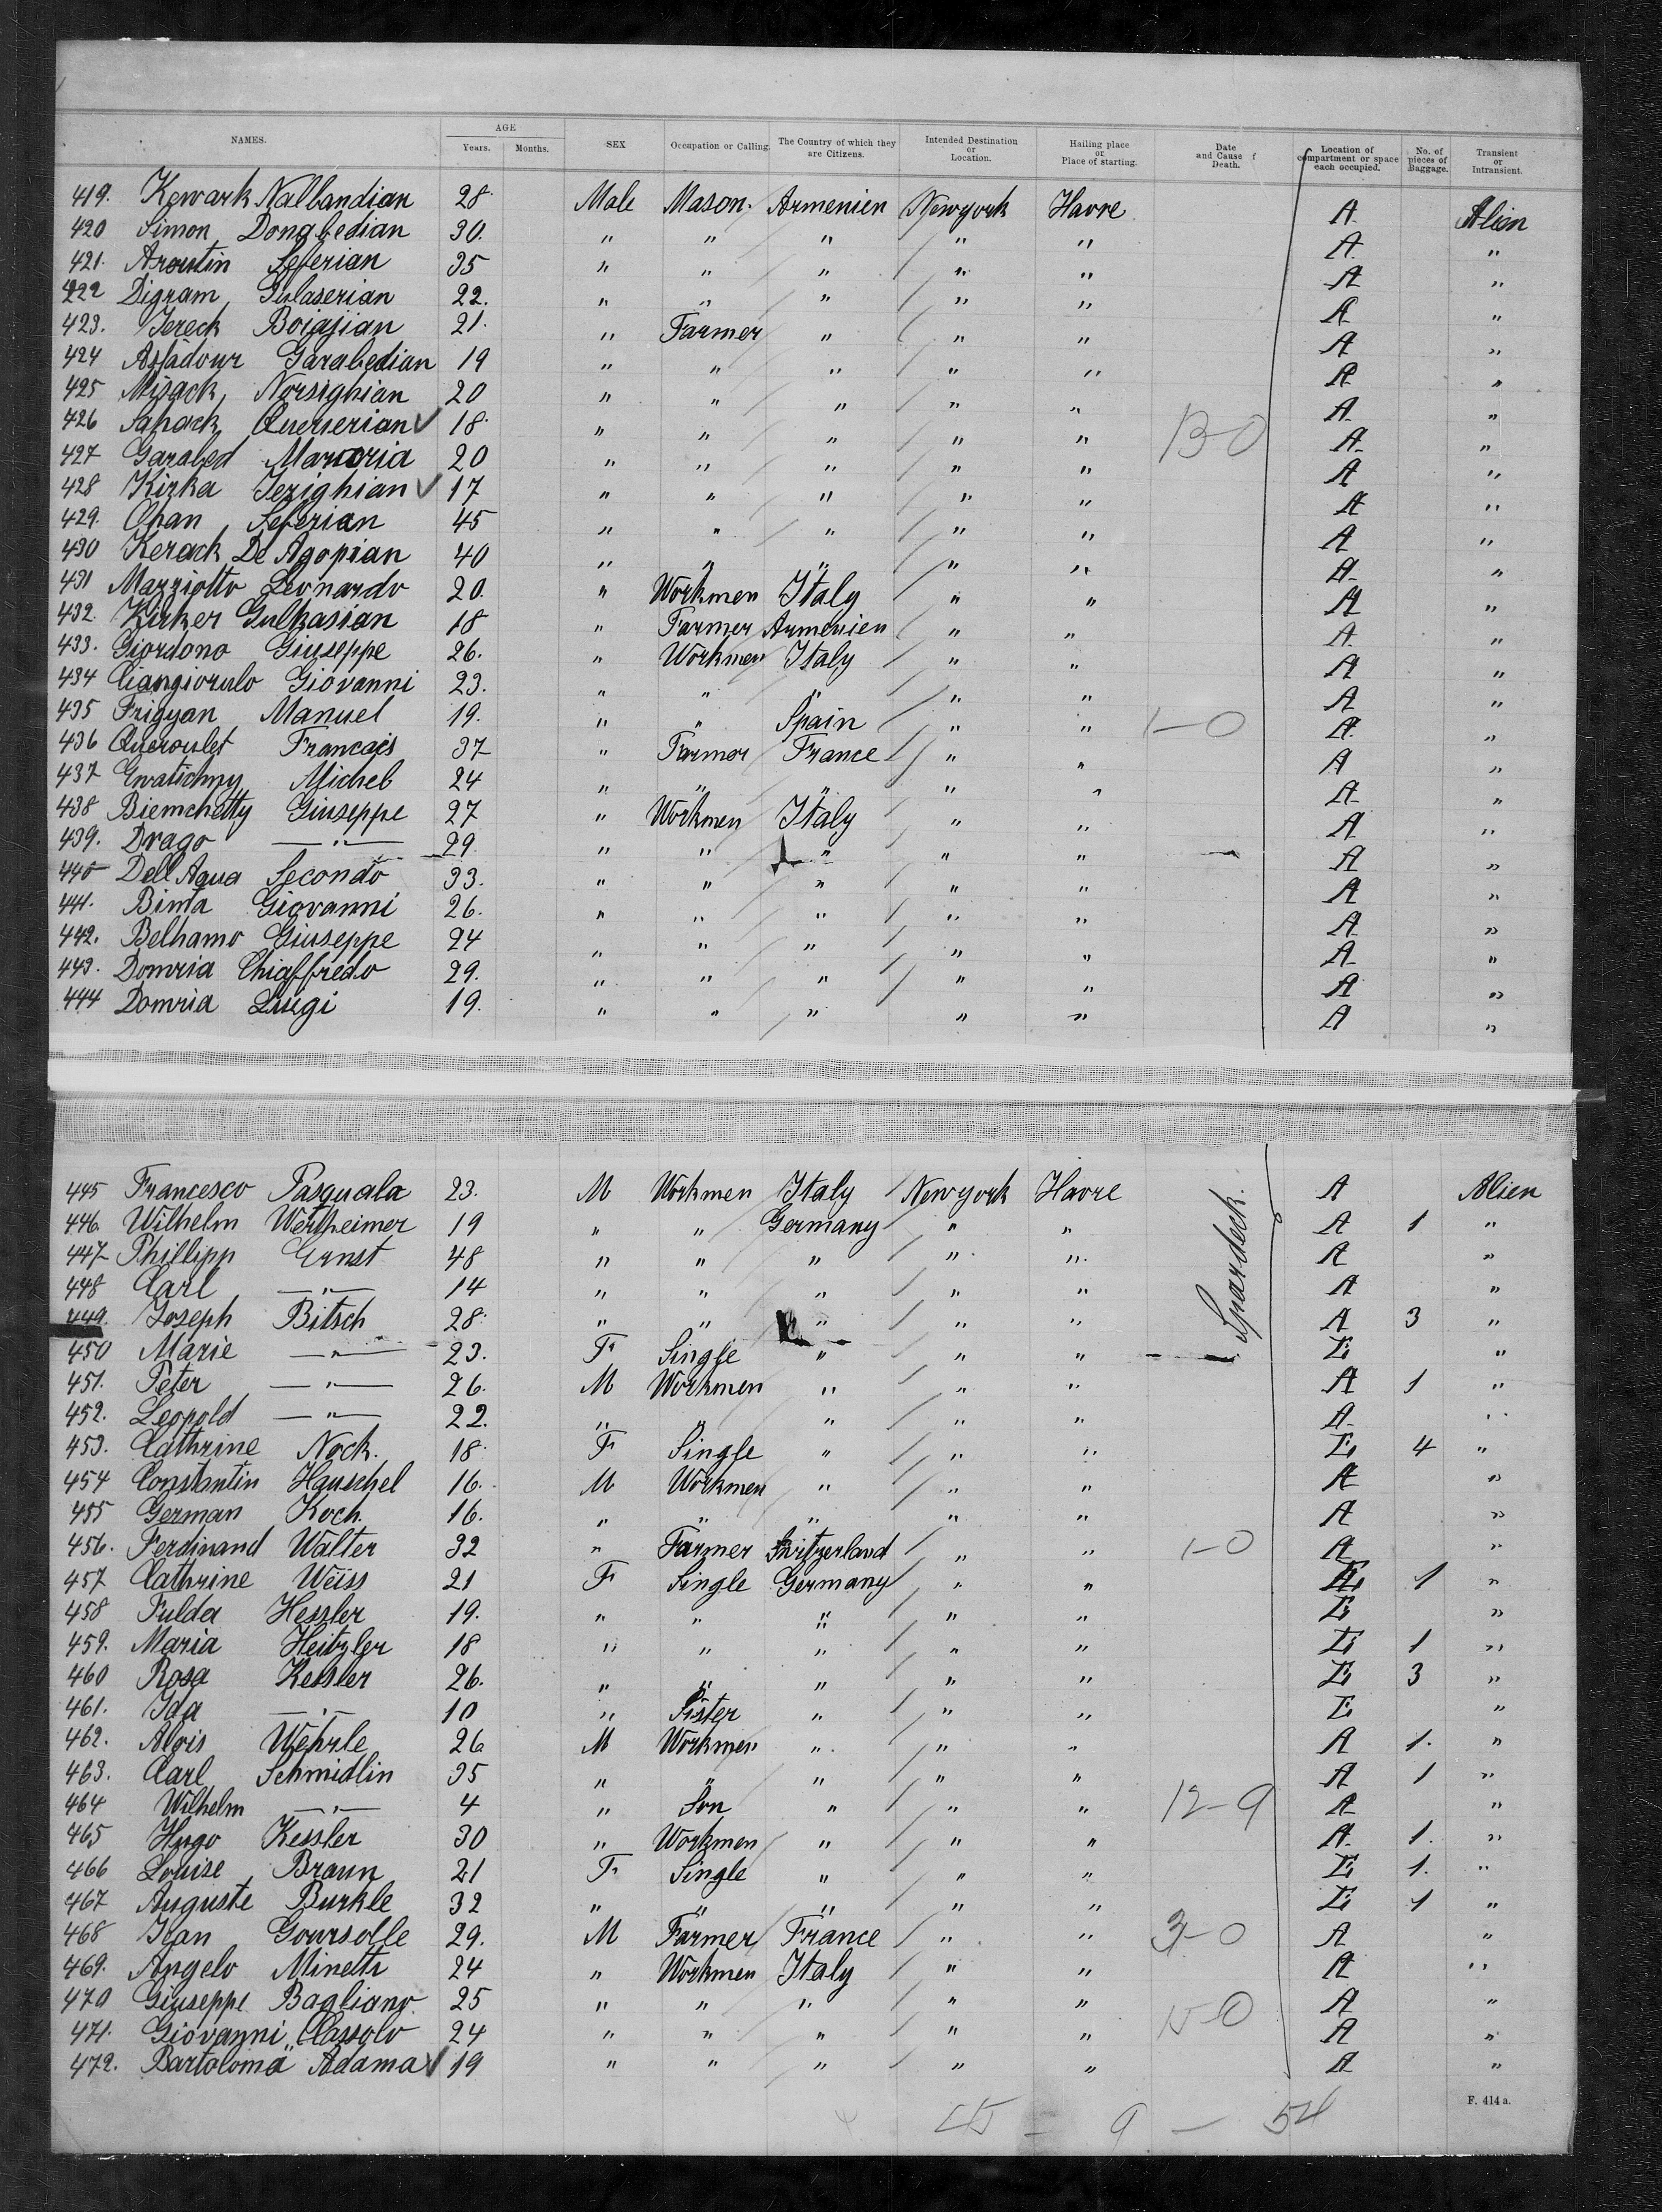 NAMES. AGE Years. Months. SEX Occupation or Calling. The Country of which they are Citizens. Intended Destination or Location. Hailing place or Place of starting. Date and Cause of Death. Location of compartment or space each occupied. No. of pieces of Baggage. Transient or Intransient.
419. Kewark Nalbandian 28 Male Mason. Armenien Newyork Havre A Alien
420 Simon Dongbedian 30. " " " " " A "
421. Aroutin Seferian 35 " " " " " A "
422 Digram Gulaserian 22. " " " " " A "
423. Jereck Boiajian 21. " Farmer " " " A "
424 Assadour Garabedian 19 " " " " " A "
425 Misack Norsighian 20 " " " " " A "
426 Sahack Querserian ✓ 18. " " " " " 13-0 A "
427 Garabed Marcoria 20 " " " " " A "
428 Kirka Jezighian ✓ 17 " " " " " A "
429. Ohan Seferian 45 " " " " " A "
430 Kerack De Agopian 40 " " " " " A "
431 Mazziotto Leonardo 20. " Workmen Italy " " A "
432. Kirker Gulkasian 18 " Farmer Armenien " " A "
433. Giordono Giuseppe 26. " Workmen Italy " " A "
434 Ciangiorulo Giovanni 23. " " " " " A "
435 Frigyan Manuel 19. " " Spain " " 1-0 A "
436 Queroulet Francois 37 " Farmer France " " A "
437 Michel 24 " " " " " A "
438 Biemchetty Giuseppe 27 " Workmen Italy " " A "
439. Drago —"— 29 " " " " " A "
440 Dell Aqua Secondo 33. " " " " " A "
441. Binta Giovanni 26. " " " " " A "
442. Belhamo Giuseppe 24 " " " " " A "
443. Domria Chiaffredo 29. " " " " " A "
444 Domria Luigi 19. " " " " " A "
445 Francesco Pasquala 23. M Workmen Italy Newyork Havre A Alien
446. Wilhelm Wertheimer 19 " " Germany " " A 1 "
447 Phillipp Ernst 48 " " " " " A "
448 Carl —"— 14 " " " " " A "
449. Joseph Bitsch 28. " " " " " Spardeck. A 3 "
450 Marie —"— 23. F Single " " " E "
451. Peter —"— 26. M Workmen " " " A 1 "
452. Leopold —"— 22. " " " " " A "
453. Cathrine Nock. 18. F Single " " " E 4 "
454 Constantin Hauschel 16. M Workmen " " " A "
455 German Koch. 16. " " " " " A "
456. Ferdinand Walter 32 " Farmer Switzerland " " 1-0 A "
457 Cathrine Weiss 21 F Single Germany " " E 1 "
458 Fulda Hessler 19. " " " " " E "
459. Maria Heitzler 18 " " " " " E 1 "
460 Rosa Kessler 26. " " " " " E 3 "
461. Ida —"— 10 " Sister " " " E "
462. Alois Wehrle 26 M Workmen " " " A 1. "
463. Carl Schmidlin 35 " " " " " A 1 "
464 Wilhelm —"— 4 " Son " " " 12-9 A "
465 Hugo Kessler 30 " Workmen " " " A 1. "
466 Louise Braun 21 F Single " " " E 1. "
467 Auguste Burkle 32 " " " " " E 1 "
468 Jean Goursolle 29. M Farmer France " " 3-0 A "
469. Angelo Minetti 24 " Workmen Italy " " A "
470 Giuseppe Bagliano. 25 " " " " " 15-0 A "
471. Giovanni Cassolo 24 " " " " " A "
472. Bartolomä Adama ✓ 19 " " " " " A "
45 - 9 - 54
F. 414 a.